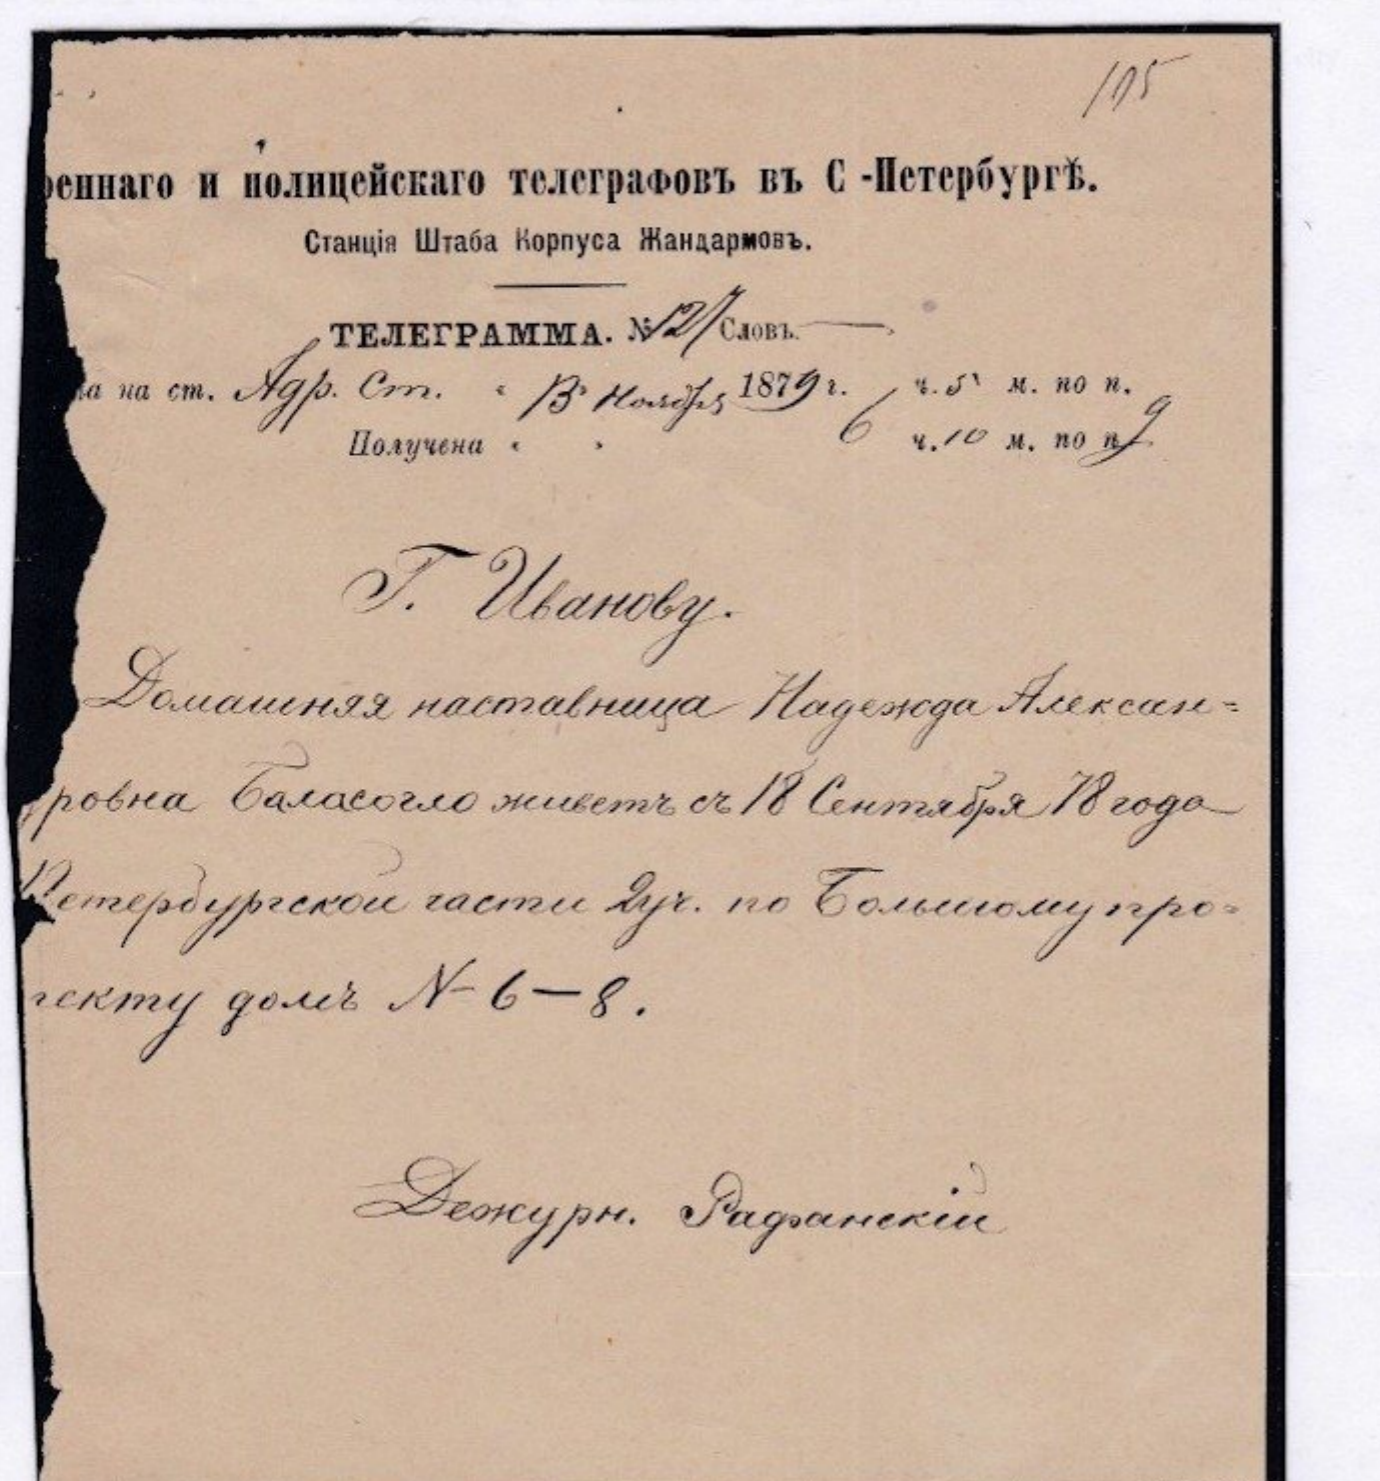 105
реннаго и полицейскаго телеграфовъ въ С -Петербургѣ.
Станція Штаба Корпуса Жандармовъ.
ТЕЛЕГРАММА. № 127 Словъ. —
на на ст. Адр. Ст. " 13 " Ноября 1879 г. ч. 5 м. по п.
Получена " " 6 ч. 10 м. по п. 9
Г. Иванову.
Домашняя наставница Надежда Алексан=
дровна Баласогло живетъ съ 18 Сентября 78 года
Петербургской части 2 уч. по Большому про=
спекту домъ № 6 — 8.
Дежурн.